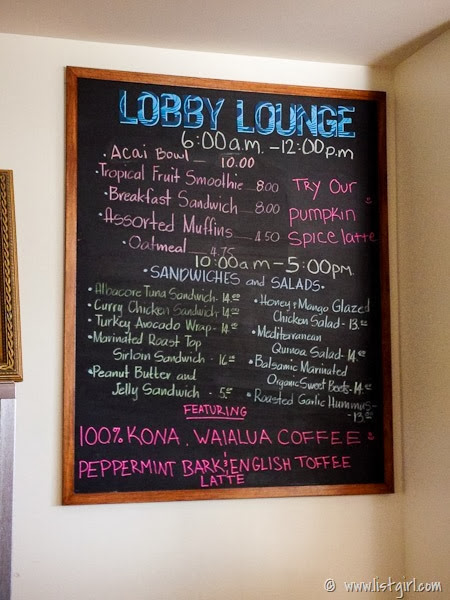 LOBBY LOUNGE
6:00 a.m. - 12:00 p.m
• Acai Bowl — 10.00
• Tropical Fruit Smoothie — 8.00
• Breakfast Sandwich — 8.00
• Assorted Muffins — 4.50
• Oatmeal — 4.75
Try Our
pumpkin
spice latte
10:00 am - 5:00 pm
• SANDWICHES and SALADS •
• Albacore Tuna Sandwich - 14.00
• Curry Chicken Sandwich - 14.00
• Turkey Avocado Wrap - 14.00
• Marinated Roast Top
Sirloin Sandwich - 16.00
• Peanut Butter and
Jelly Sandwich - 5.00
• Honey & Mango Glazed
Chicken Salad - 13.00
• Mediterranean
Quinoa Salad - 14.00
• Balsamic Marinated
Organic Sweet Beets - 14.00
• Roasted Garlic Hummus -
13.00
FEATURING
100% KONA, WAIALUA COFFEE &
PEPPERMINT BARK & ENGLISH TOFFEE
LATTE
© www.listgirl.com